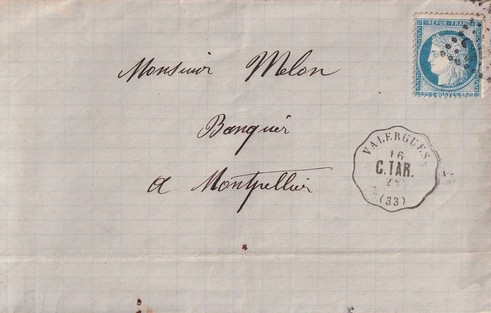 REPUB. FRANC.
Monsieur Melon
Banquier
a Montpellier
VALERGUES
16
C.TAR.
(33)